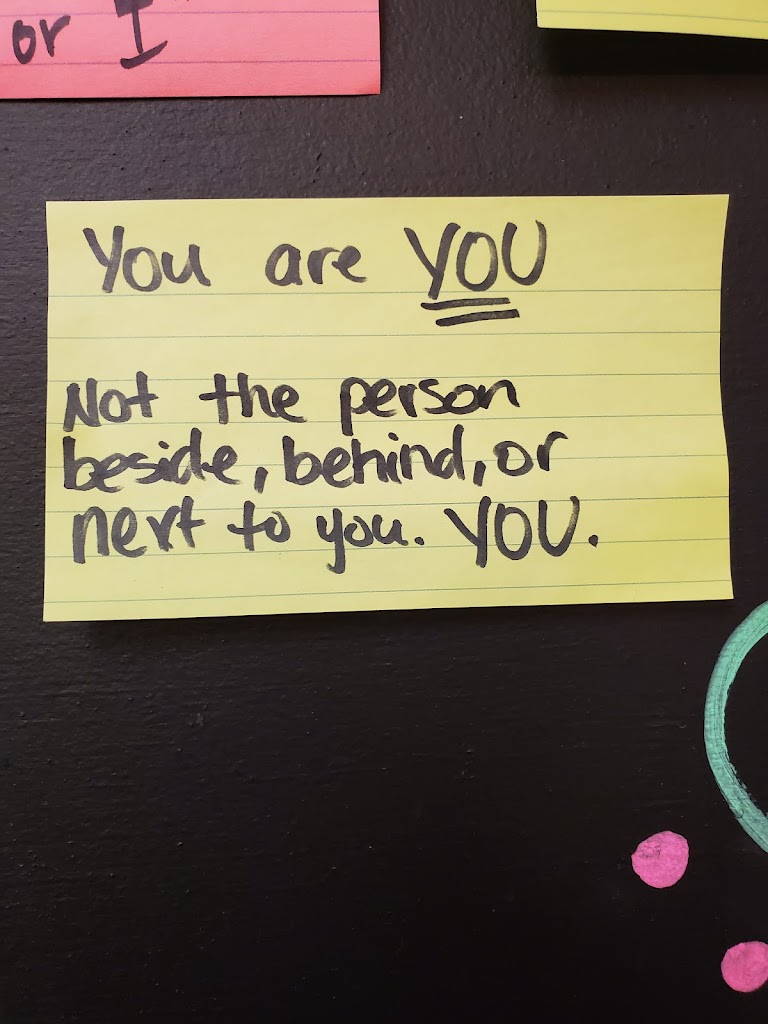 or I
You are YOU
Not the person
beside, behind, or
next to you. YOU.